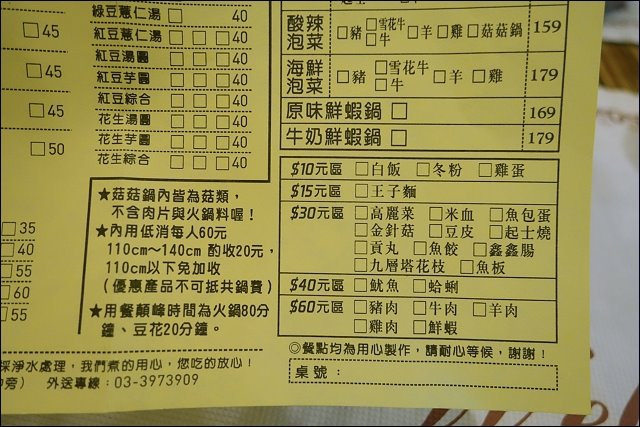 綠豆薏仁湯 □ 40
紅豆薏仁湯 □ □ □ 40
紅豆湯圓 □ □ □ 40
紅豆芋圓 □ □ □ 40
紅豆綜合 □ □ □ 40
花生湯圓 □ □ □ 40
花生芋圓 □ □ □ 40
花生綜合 □ □ □ 40
□45
□45
□45
□50
□35
□40
□55
□60
□55
★菇菇鍋內皆為菇類，
不含肉片與火鍋料喔！
★內用低消每人60元
110cm～140cm 酌收20元，
110cm以下免加收
（優惠產品不可抵共鍋費）
★用餐顛峰時間為火鍋80分
鐘、豆花20分鐘。
深淨水處理，我們煮的用心，您吃的放心！
旁） 外送專線：03-3973909
酸辣泡菜 □豬 □雪花牛 □牛 □羊 □雞 □菇菇鍋 159
海鮮泡菜 □豬 □雪花牛 □牛 □羊 □雞 179
原味鮮蝦鍋 □ 169
牛奶鮮蝦鍋 □ 179
$10元區 □白飯 □冬粉 □雞蛋
$15元區 □王子麵
$30元區 □高麗菜 □米血 □魚包蛋
□金針菇 □豆皮 □起士燒
□貢丸 □魚餃 □鑫鑫腸
□九層塔花枝 □魚板
$40元區 □魷魚 □蛤蜊
$60元區 □豬肉 □牛肉 □羊肉
□雞肉 □鮮蝦
◎餐點均為用心製作，請耐心等候，謝謝！
桌號：